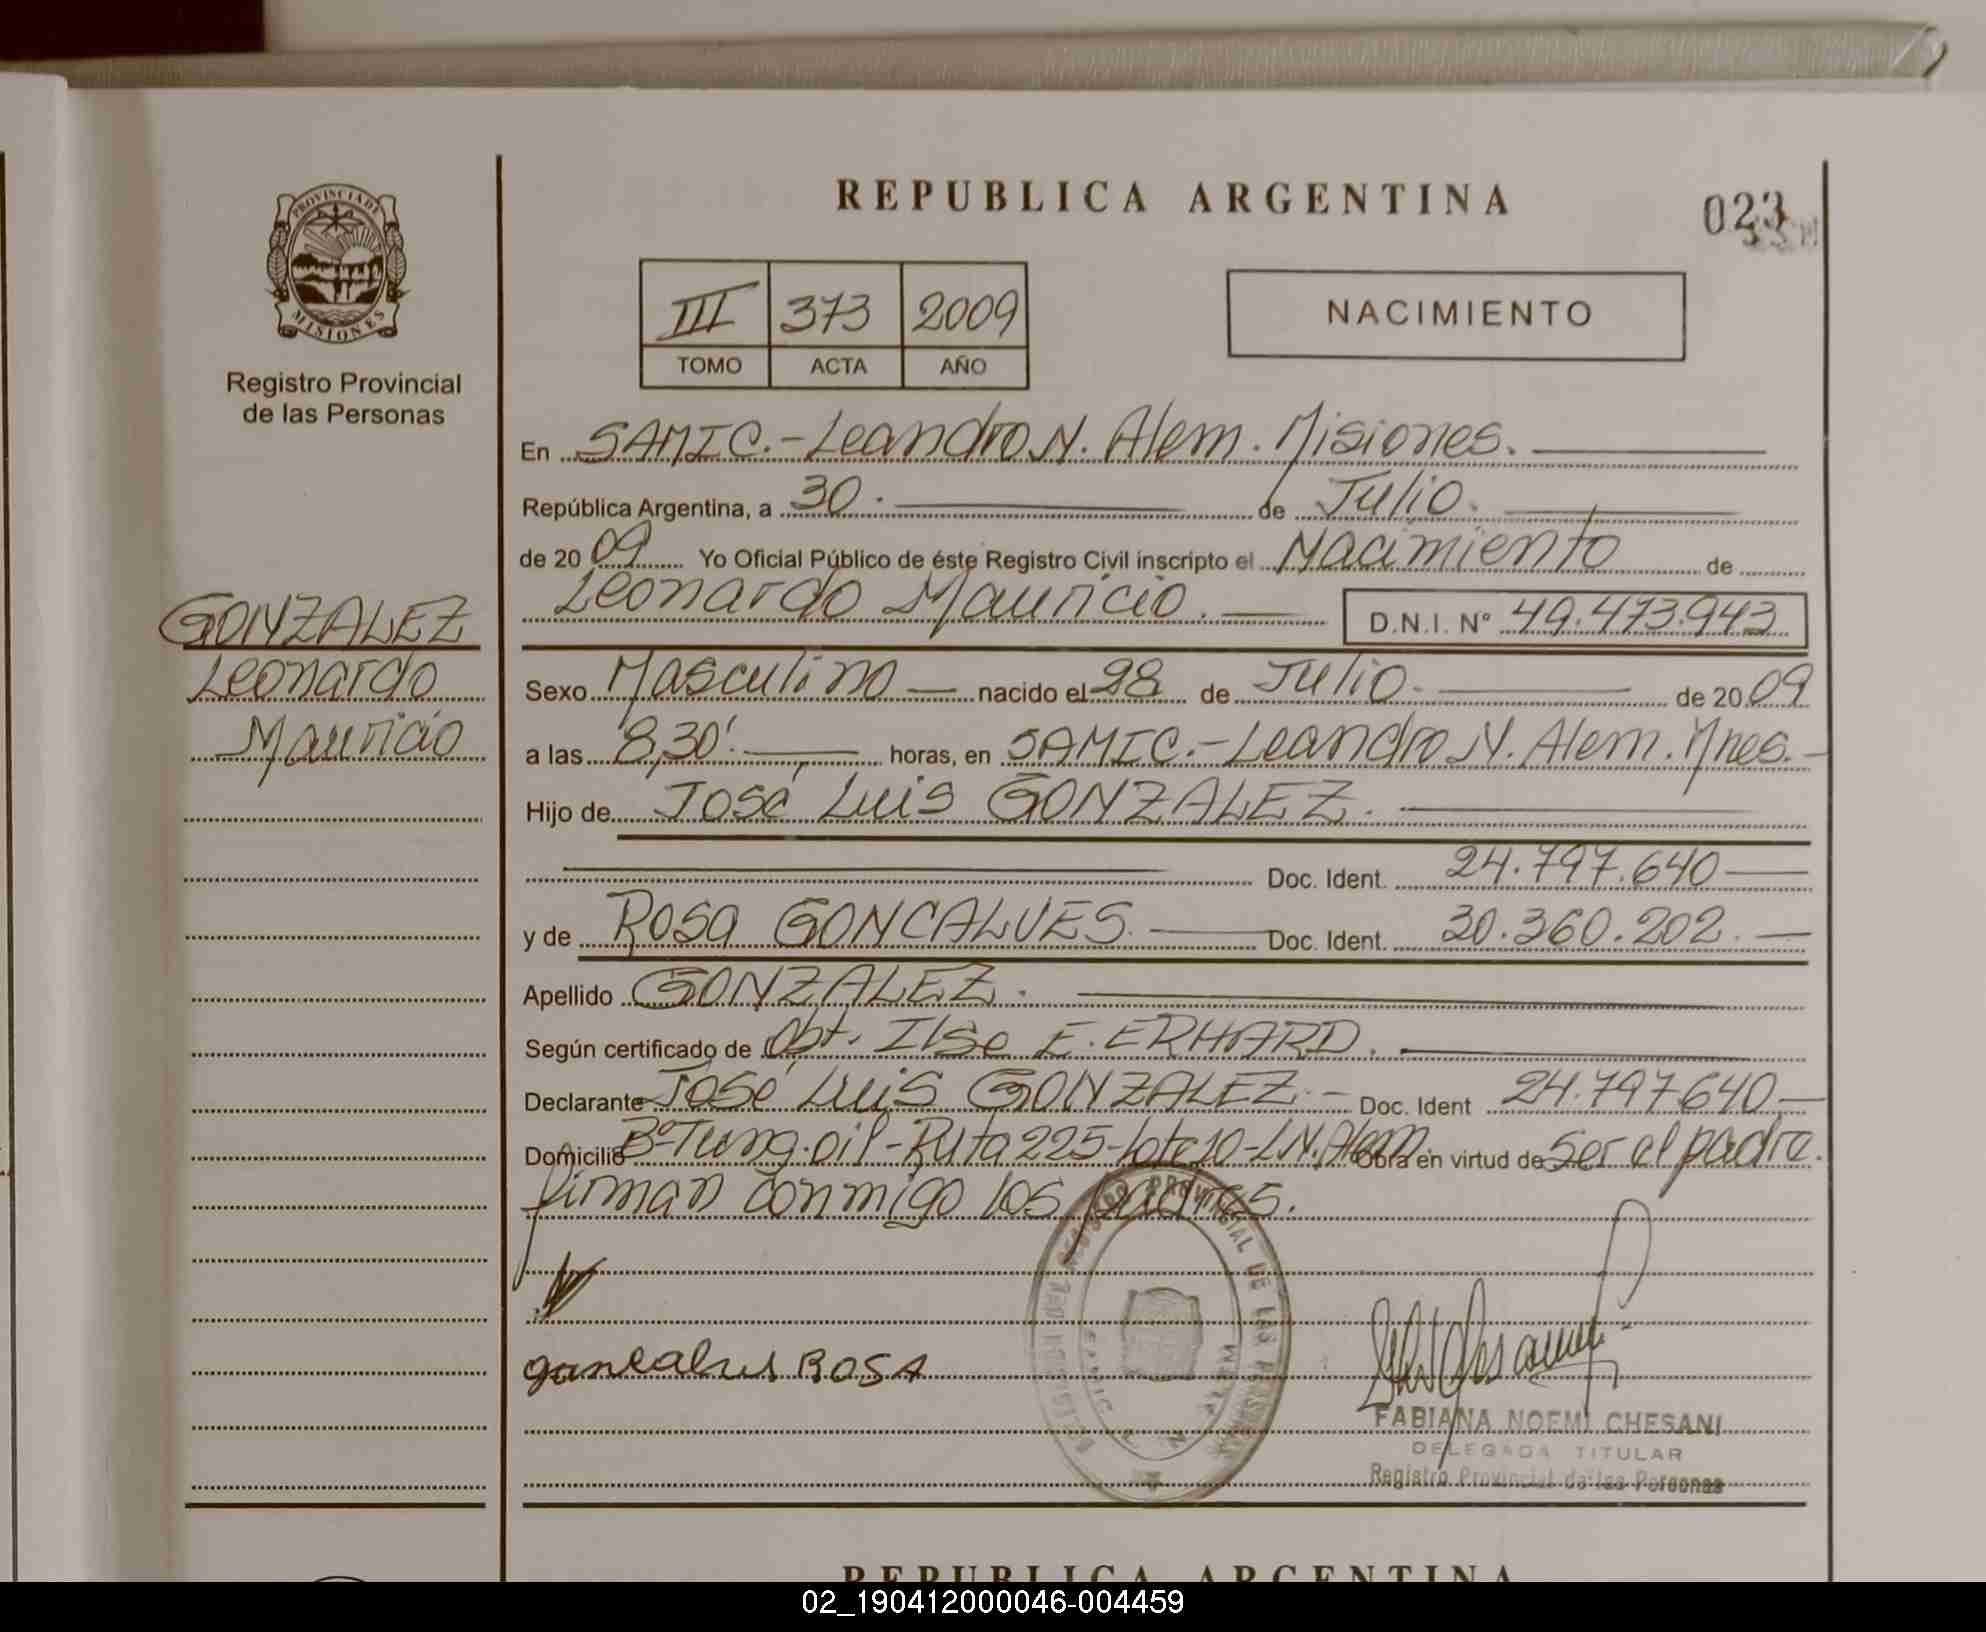 REPUBLICA ARGENTINA
023
PROVINCIA DE
MISIONES
Registro Provincial
de las Personas
III 373 2009
TOMO ACTA AÑO
NACIMIENTO
En SAMIC.-Leandro N. Alem. Misiones.
República Argentina, a 30. de Julio.
de 2009 Yo Oficial Público de éste Registro Civil inscripto el Nacimiento de
Leonardo Mauricio. D.N.I. N° 49.473.943
GONZALEZ
Leonardo
Mauricio
Sexo Masculino nacido el 28 de Julio. de 2009
a las 8,30'. horas, en SAMIC.-Leandro N. Alem. Mnes.-
Hijo de José Luis GONZALEZ.
Doc. Ident. 24.797.640
y de Rosa GONCALVES. Doc. Ident. 30.360.202.
Apellido GONZALEZ.
Según certificado de Obt. Ilse E. ERHARD.
Declarante José Luis GONZALEZ.- Doc. Ident 24.797.640
Domicilio B° Tung-oil-Ruta 225-Lote 10-L.N. Alem. Obra en virtud de Ser el padre.
firman conmigo los padres.
goncalves ROSA
REGISTRO PROVINCIAL DE LAS PERSONAS
FABIANA NOEMI CHESANI
DELEGADA TITULAR
Registro Provincial de las Personas
REPUBLICA ARGENTINA
02_190412000046-004459